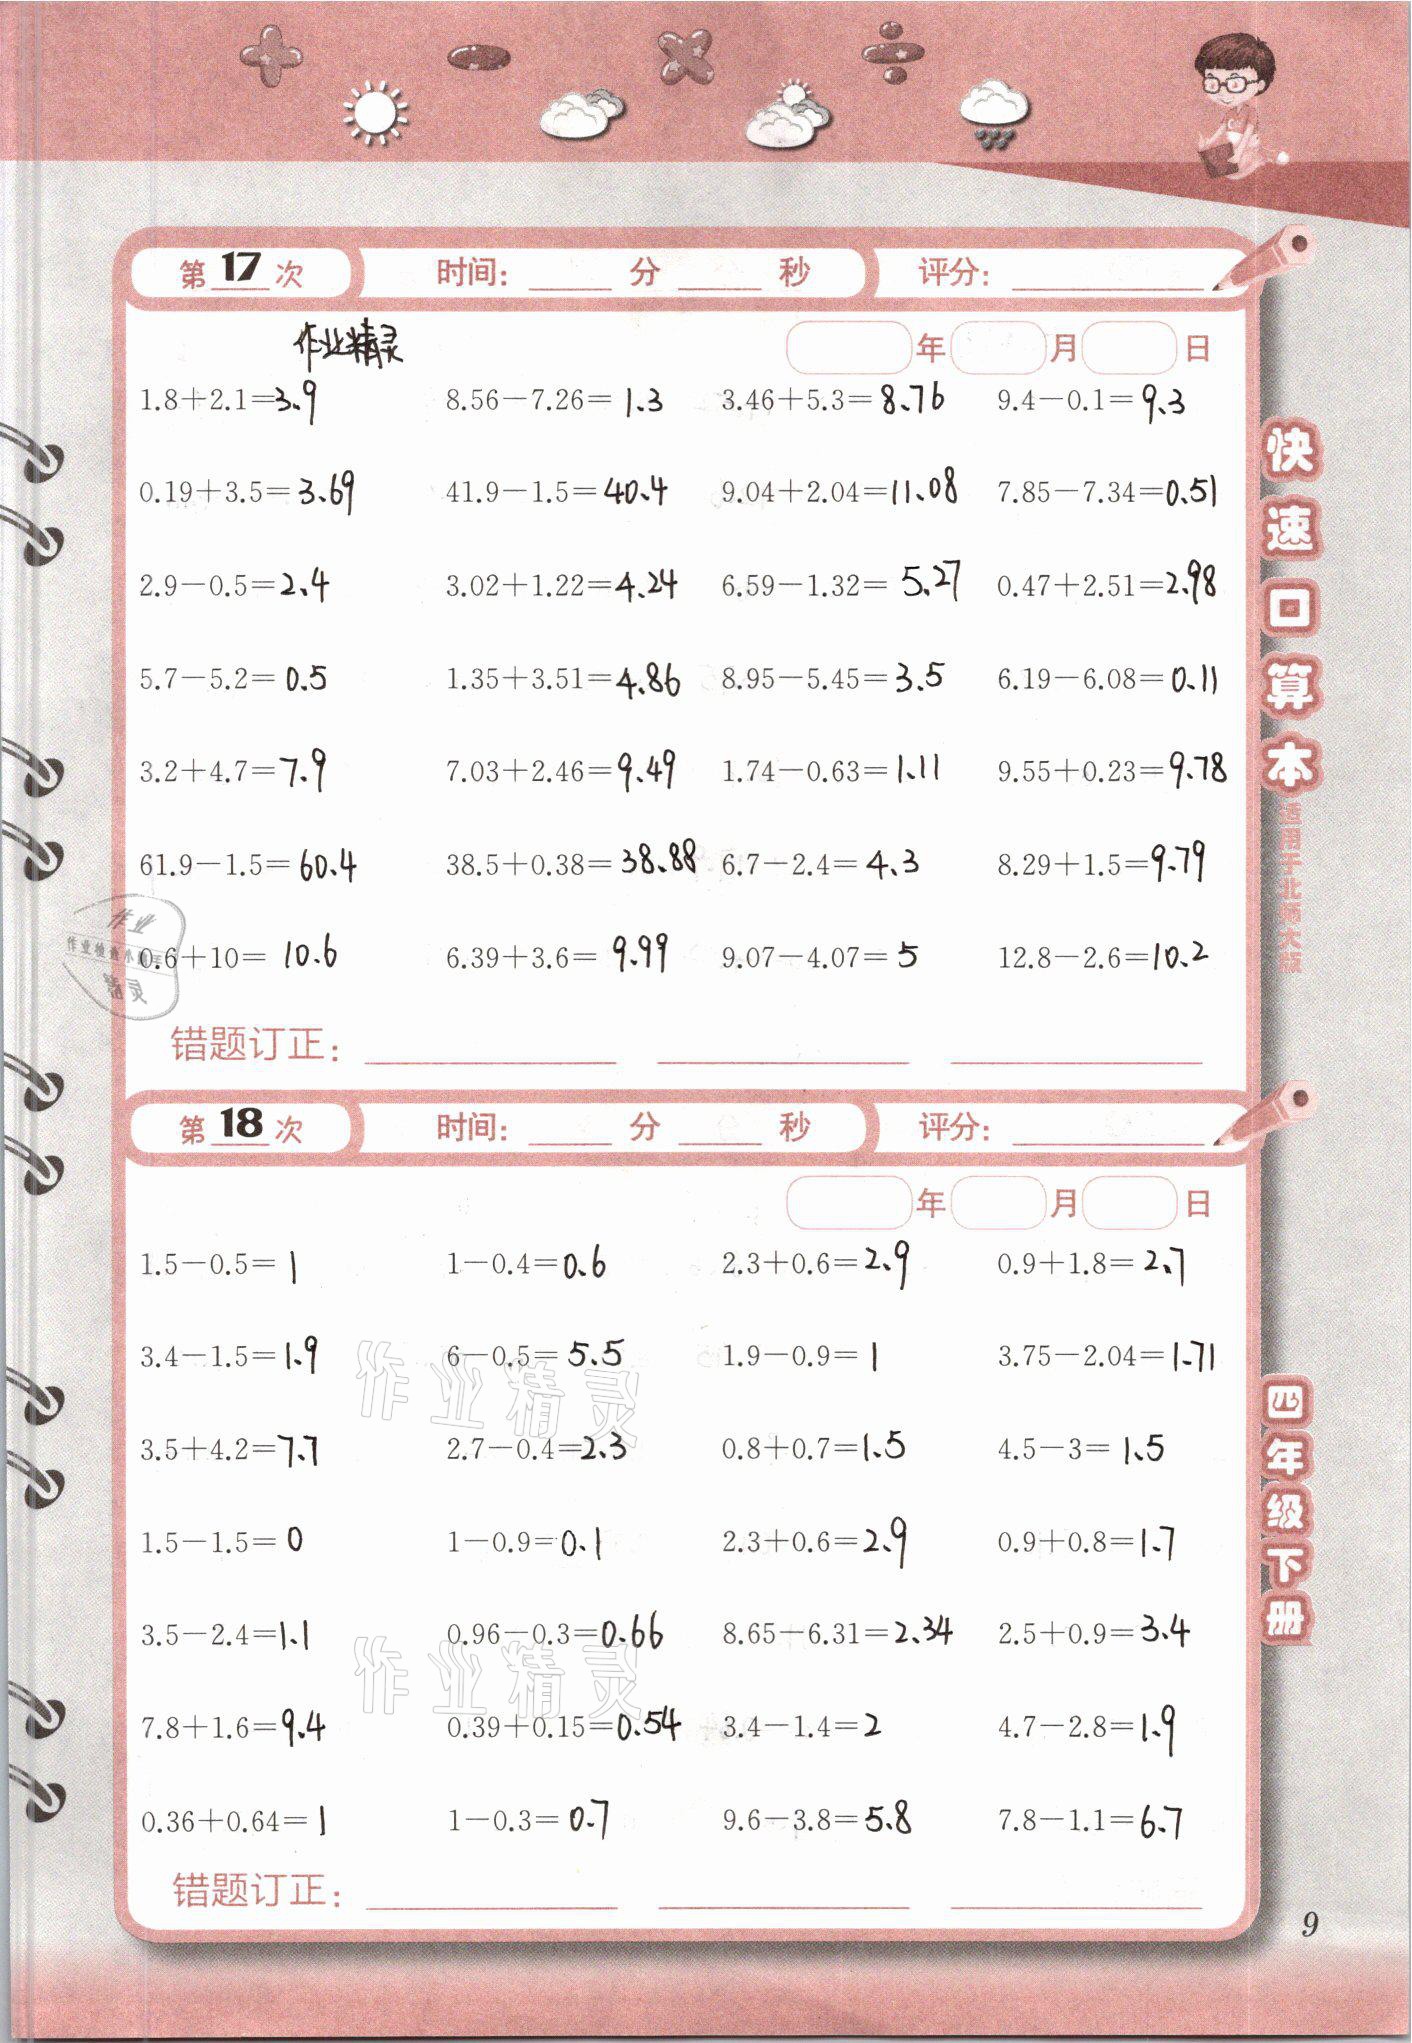 第 17 次 时间: 分 秒 评分:
作业精灵
年 月 日
1.8+2.1=3.9 8.56-7.26=1.3 3.46+5.3=8.76 9.4-0.1=9.3
0.19+3.5=3.69 41.9-1.5=40.4 9.04+2.04=11.08 7.85-7.34=0.51
2.9-0.5=2.4 3.02+1.22=4.24 6.59-1.32=5.27 0.47+2.51=2.98
5.7-5.2=0.5 1.35+3.51=4.86 8.95-5.45=3.5 6.19-6.08=0.11
3.2+4.7=7.9 7.03+2.46=9.49 1.74-0.63=1.11 9.55+0.23=9.78
61.9-1.5=60.4 38.5+0.38=38.88 6.7-2.4=4.3 8.29+1.5=9.79
0.6+10=10.6 6.39+3.6=9.99 9.07-4.07=5 12.8-2.6=10.2
错题订正:
第 18 次 时间: 分 秒 评分:
年 月 日
1.5-0.5=1 1-0.4=0.6 2.3+0.6=2.9 0.9+1.8=2.7
3.4-1.5=1.9 6-0.5=5.5 1.9-0.9=1 3.75-2.04=1.71
3.5+4.2=7.7 2.7-0.4=2.3 0.8+0.7=1.5 4.5-3=1.5
1.5-1.5=0 1-0.9=0.1 2.3+0.6=2.9 0.9+0.8=1.7
3.5-2.4=1.1 0.96-0.3=0.66 8.65-6.31=2.34 2.5+0.9=3.4
7.8+1.6=9.4 0.39+0.15=0.54 3.4-1.4=2 4.7-2.8=1.9
0.36+0.64=1 1-0.3=0.7 9.6-3.8=5.8 7.8-1.1=6.7
错题订正:
快速口算本
适用于北师大版
四年级下册
9
作业
精灵
作业精灵
作业精灵